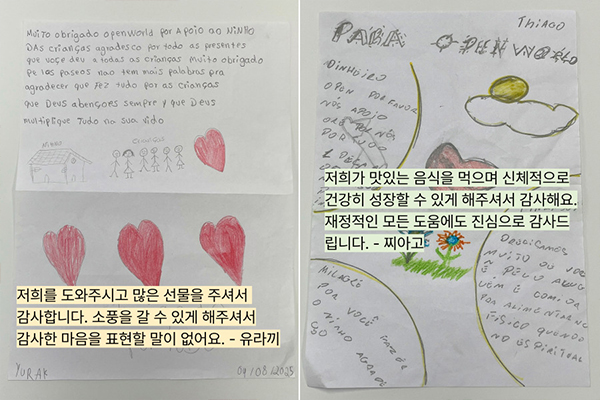 Muito obrigado OpenWorld por Apoio ao Ninho
DAs crianças agradesco por todo as presentes
que voçe deu a todas as crianças Muito obrigado
Pe los paseos não tem mais palabras pra
agradecer que fez tudo por as crianças
que Deus abençoes sempre y que Deus
multiplique tudo na sua vido
Ninho
Crianças
저희를 도와주시고 많은 선물을 주셔서
감사합니다. 소풍을 갈 수 있게 해주셔서
감사한 마음을 표현할 말이 없어요. - 유라끼
YURAK
09/08/2025
THIAGO
PARA O PEN WORLD
DINHEIRO
OPEN POR FAVOR
NÓS APOIO
ORE POR NÓS
POR TUDO
저희가 맛있는 음식을 먹으며 신체적으로
건강히 성장할 수 있게 해주셔서 감사해요.
재정적인 모든 도움에도 진심으로 감사드
립니다. - 찌아고
MUITO
POR ALIMENTARNO
FISICO QUANDO
NO ESPIRITUAL
MILAGRE
POR VOCÊ FAZER
O NINHO